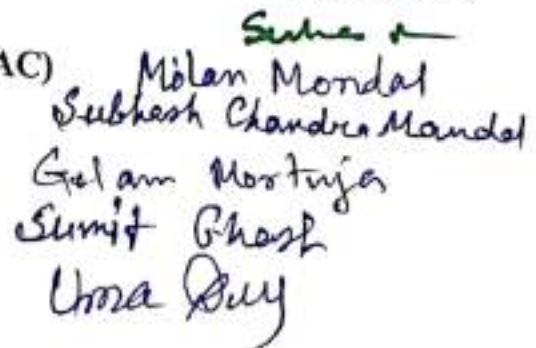 AC)
Milan Mondal
Subhash Chandra Mandal
Golam Mortuja
Sumit Ghosh
Uma